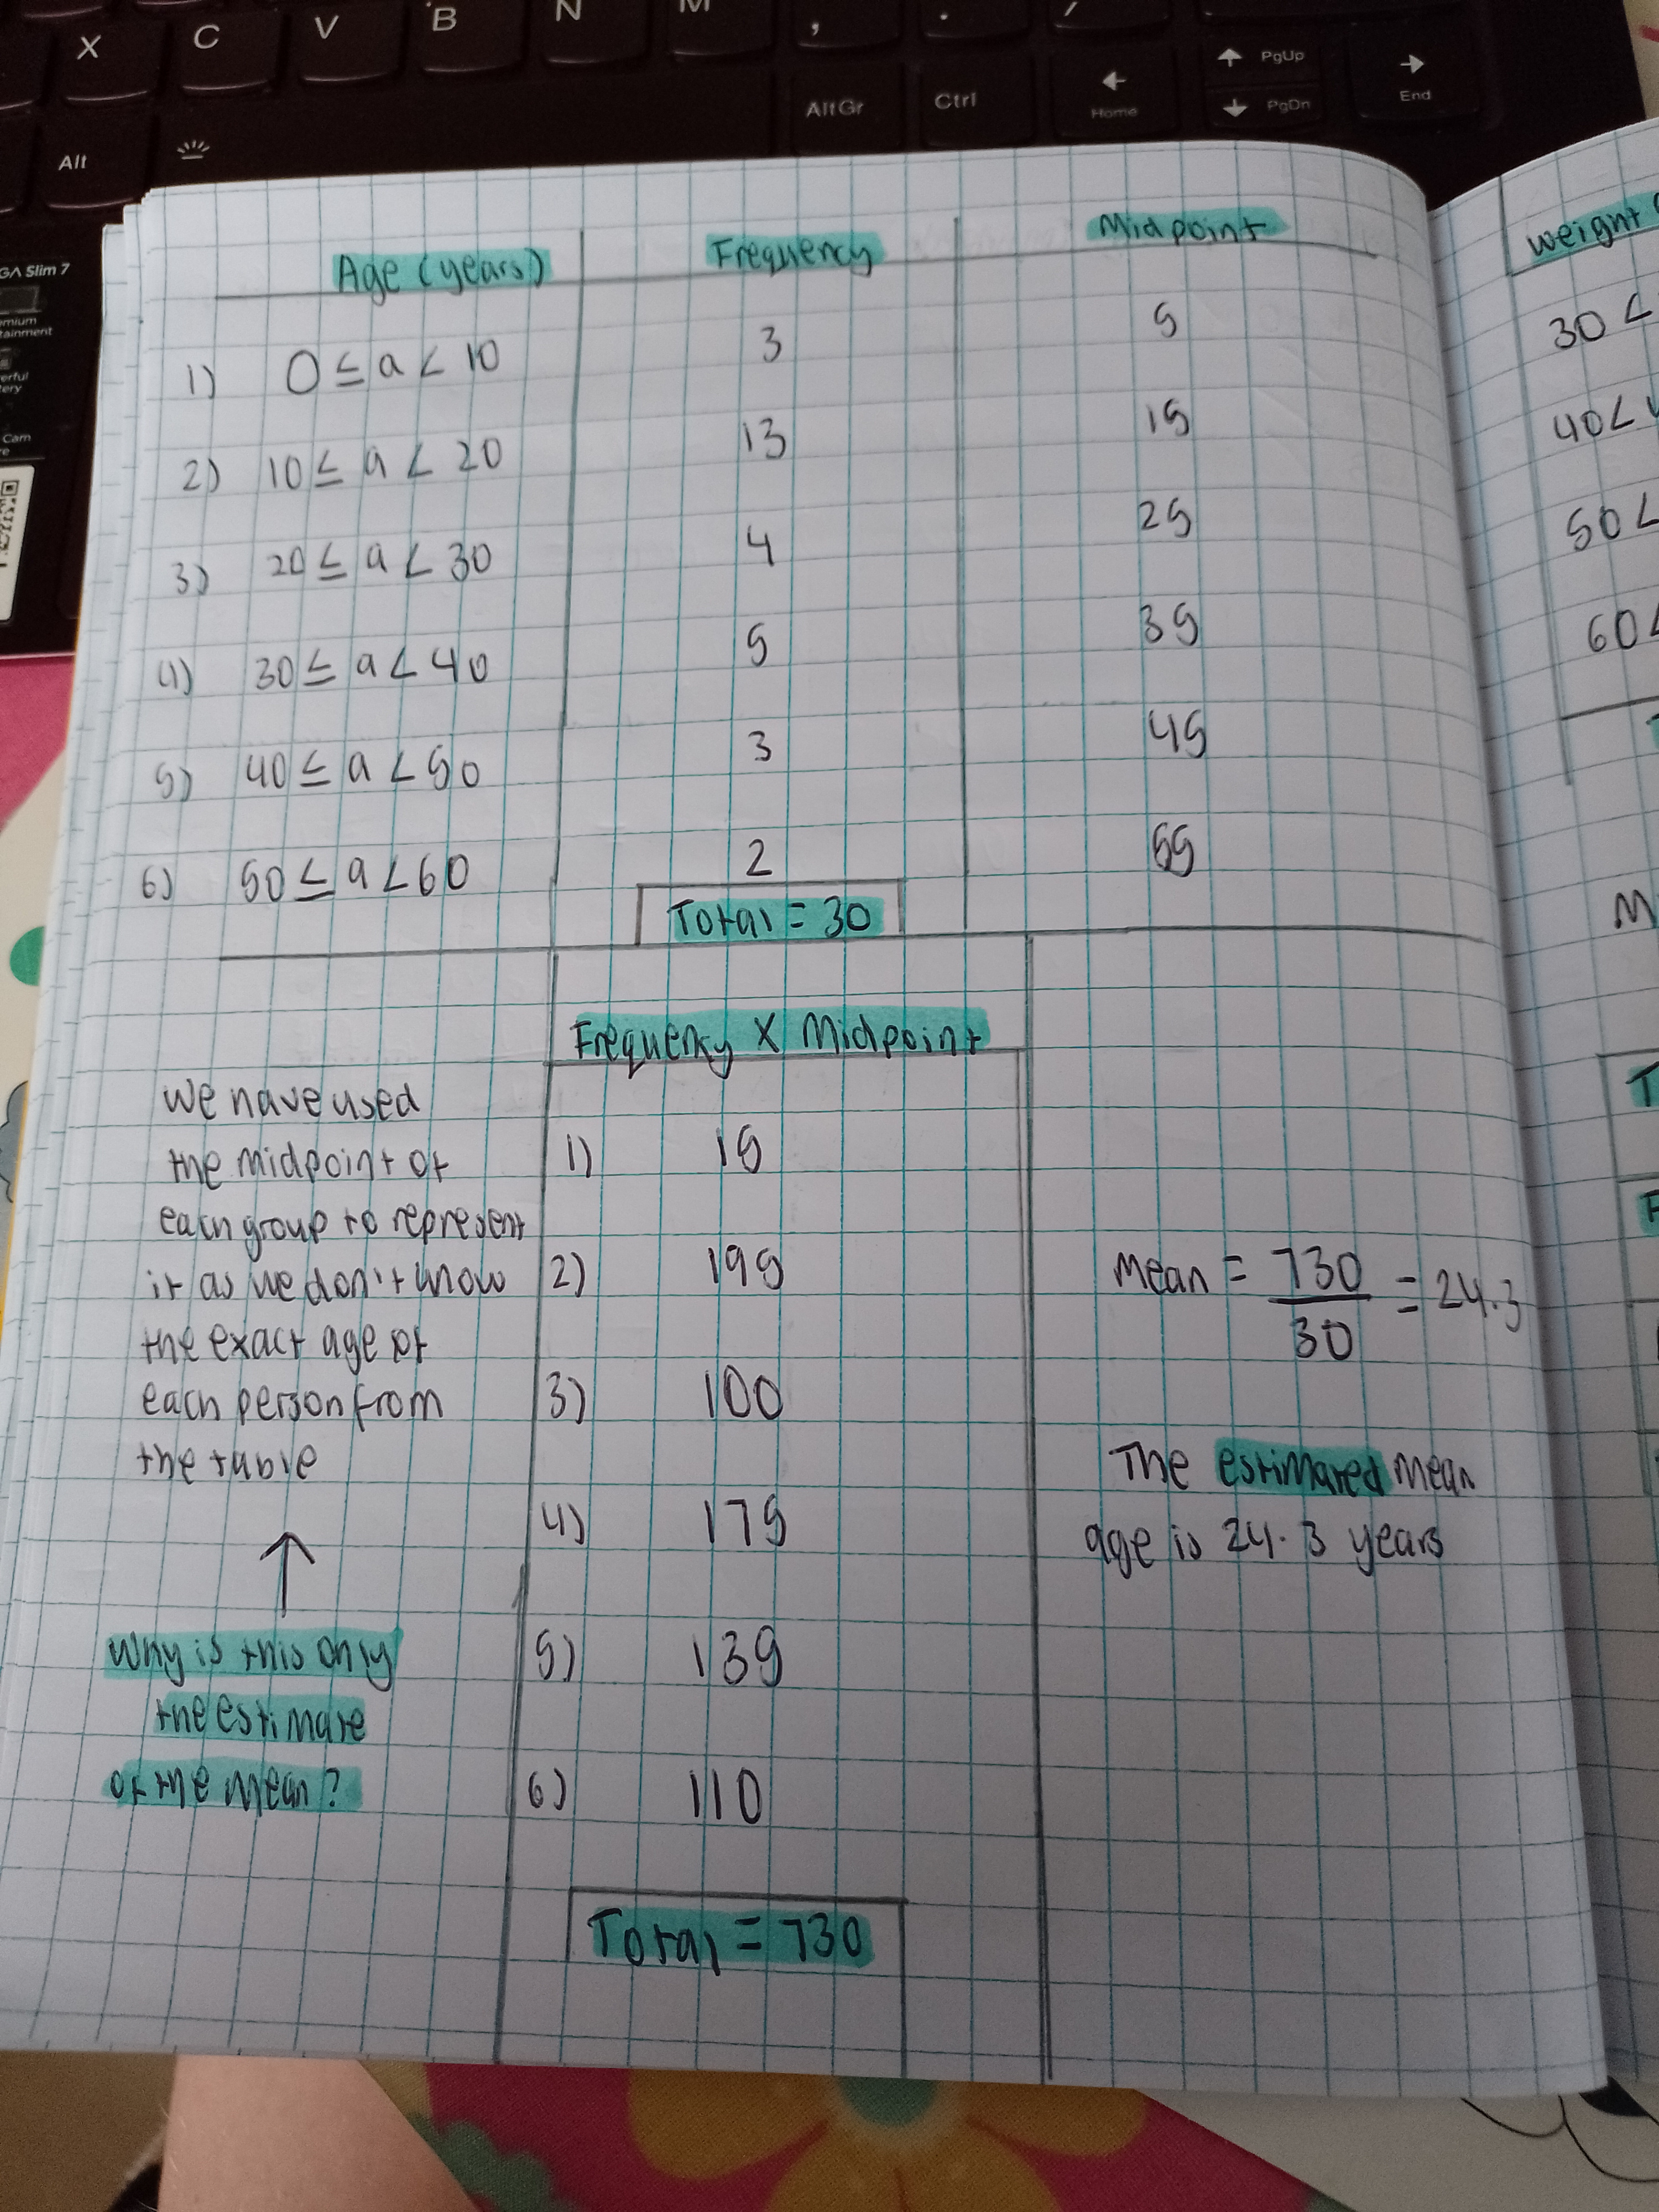 X C V B N M , . /
Alt AltGr Ctrl ← Home ↑ PgUp ↓ PgDn → End
GA Slim 7
Age (years) Frequency Midpoint
1) 0 ≤ a < 10 3 5
2) 10 ≤ a < 20 13 15
3) 20 ≤ a < 30 4 25
4) 30 ≤ a < 40 5 35
5) 40 ≤ a < 50 3 45
6) 50 ≤ a < 60 2 55
Total = 30
Frequency X Midpoint
1) 15
2) 195
3) 100
4) 175
5) 135
6) 110
Total = 730
we have used
the midpoint of
each group to represent
it as we don't know
the exact age of
each person from
the table
↑
Why is this only
the estimate
of the mean?
Mean = 730/30 = 24.3
The estimated mean
age is 24.3 years
weight
30 <
40 <
50 <
60 <
M
T
F